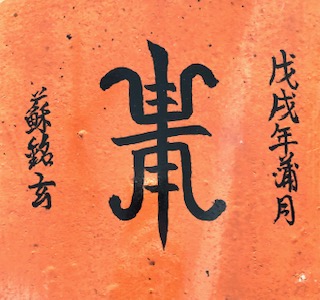 戊戌年蒲月
蘇銘玄